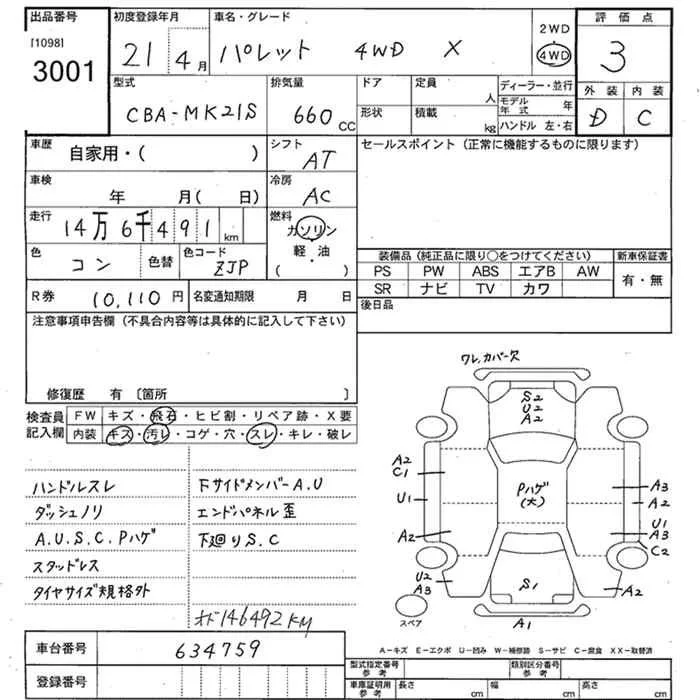 出品番号
[1098]
3001
初度登録年月
21年 4月
車名・グレード
パレット 4WD X
2WD
4WD
評価点
3
型式
CBA-MK21S
排気量
660 CC
ドア
定員
人
形状
積載
kg
ディーラー・並行
モデル年式 年
ハンドル 左・右
外装 内装
D C
車歴
自家用・( )
シフト
AT
セールスポイント (正常に機能するものに限ります)
車検
年 月( 日)
冷房
AC
走行
14万6千491 km
燃料
ガソリン
軽・油
・
( )
色
コン
色替
色コード
ZJP
装備品 (純正品に限り○をつけてください)
新車保証書
PS PW ABS エアB AW
SR ナビ TV カワ
有・無
R券 10,110 円
名変通知期限 月 日
後日品
注意事項申告欄 (不具合内容等は具体的に記入して下さい)
修復歴 有 〔箇所 〕
検査員記入欄
FW キズ・飛石・ヒビ割・リペア跡・X要
内装 キズ・汚レ・コゲ・穴・スレ・キレ・破レ
ハンドルスレ
ダッシュノリ
A.U.S.C.Pハゲ
スタッドレス
タイヤサイズ規格外
下サイドメンバーA.U
エンドパネル歪
下廻りS.C
146492KM
ワレ,カバー欠
S2
U2
A2
A2
C1
U1
A2
U2
A3
Pハゲ
(大)
A3
A2
U1
A3
C2
A2
S1
A1
スペア
A-キズ E-エクボ U-凹み W-補修跡 S-サビ C-腐食 XX-取替済
車台番号
634759
登録番号
型式指定番号
参考
類別区分番号
参考
車庫証明用
参考
長さ cm
幅 cm
高さ cm